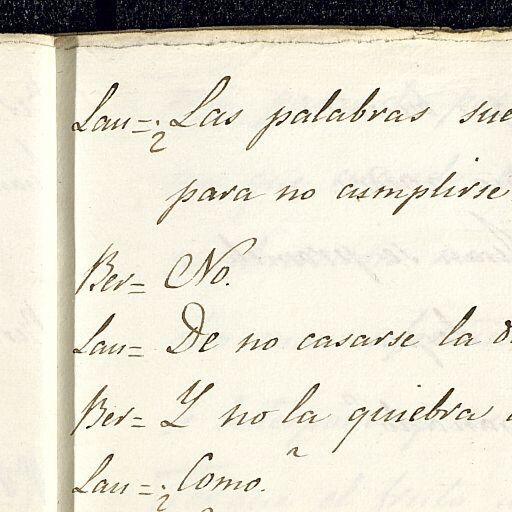 Lau= ¿Las palabras
para no cumplirse
Ber= No.
Lau= De no casarse la
Ber= Y no la quiebra
Lau= ¿Como.